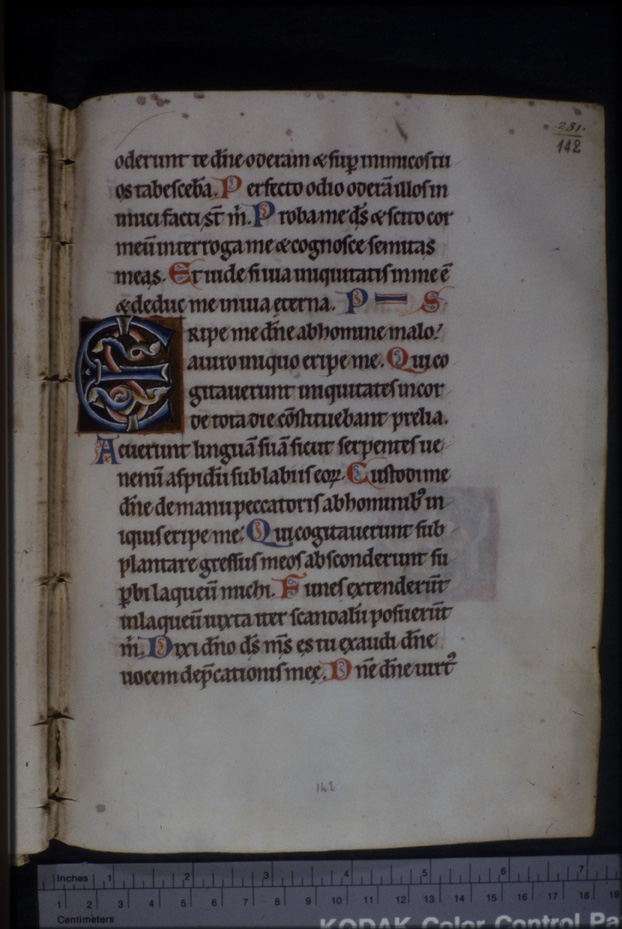 281.
142
oderunt te dñe oderam & sup inimicos tu
os tabesceba. Perfecto odio oderã illos in
imici facti st̄ m̄. Proba me d̄s & scito cor
meũ interroga me & cognosce semitas
meas. Et uide si uia iniquitatis in me ē
& deduc me in uia eterna. P S
ERIPE me dñe ab homine malo:
a uiro iniquo eripe me. Qui co
gitauerunt iniquitates in cor
de tota die cõstituebant prelia.
Acuerunt linguã suã sicut serpentes ue
nenũ aspidũ sub labiis eoꝝ. Custodi me
dñe de manu peccatoris ab hominibꝰ in
iquis eripe me. Qui cogitauerunt sub
plantare gressus meos absconderunt su
ꝑbi laqueũ michi. Funes extenderũt
in laqueũ iuxta iter scandalũ posuerũt
m̄. Dixi dño d̄s m̄s es tu exaudi dñe
uocem dep̄cationis meę. Dñe dñe uirtꝰ
142
Inches 1 2 3 4 5 6 7
1 2 3 4 5 6 7 8 9 10 11 12 13 14 15 16 17 18 19
Centimeters
KODAK Color Control Pa